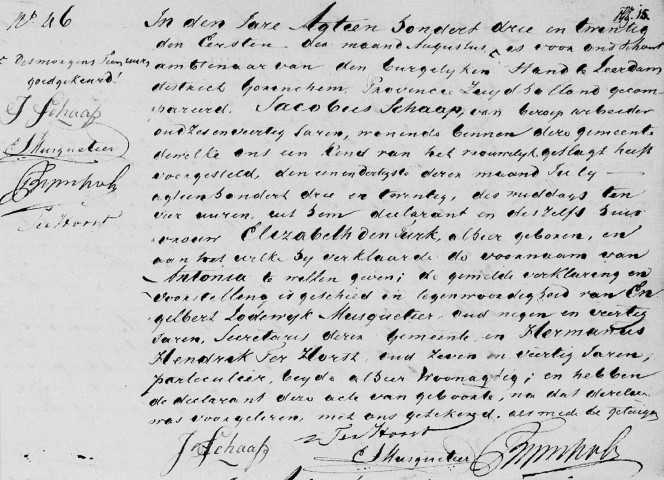 No. 46
des morgens
goedgekeurd!
J. Schaap
E L Musquetier
Ter Horst
15.
In den Jare Agtien honderd drie en twintig
den Eersten der maand Augustus, is voor ons Schout
ambtenaar van den burgelyken Stand te Leerdam
district Gorinchem, Provincie Zuyd holland gecom-
pareerd. Jacobus Schaap, van beroep arbeider
oud zes en veertig Jaren, wonende binnen deze gemeente
dewelke ons een Kind van het vrouwelyk geslagt heeft
voorgesteld, den een en dertigste dezer maand July
agtien honderd drie en twintig, des middags ten
vier uuren, uit hem declarant en deszelfs huis
vrouw Elizabeth den Turk, alhier geboren, en
aan het welke hy verklaarde de voornaam van
Antonia te willen geven; de gemelde verklaring en
voorstelling is geschied in tegenwoordigheid van En
gelbert Lodewyk Musquetier oud negen en veertig
Jaren, Secretaris dezer Gemeente en Hermanus
Hendrik Ter Horst, oud zeven en veertig Jaren,
particulier, beyde alhier Woonagtig; en hebben
de declarant deze acte van geboorte, na dat dezelve
was voorgelezen, met ons getekend. als mede de getuigen
Ter Horst
J. Schaap
E L Musquetier